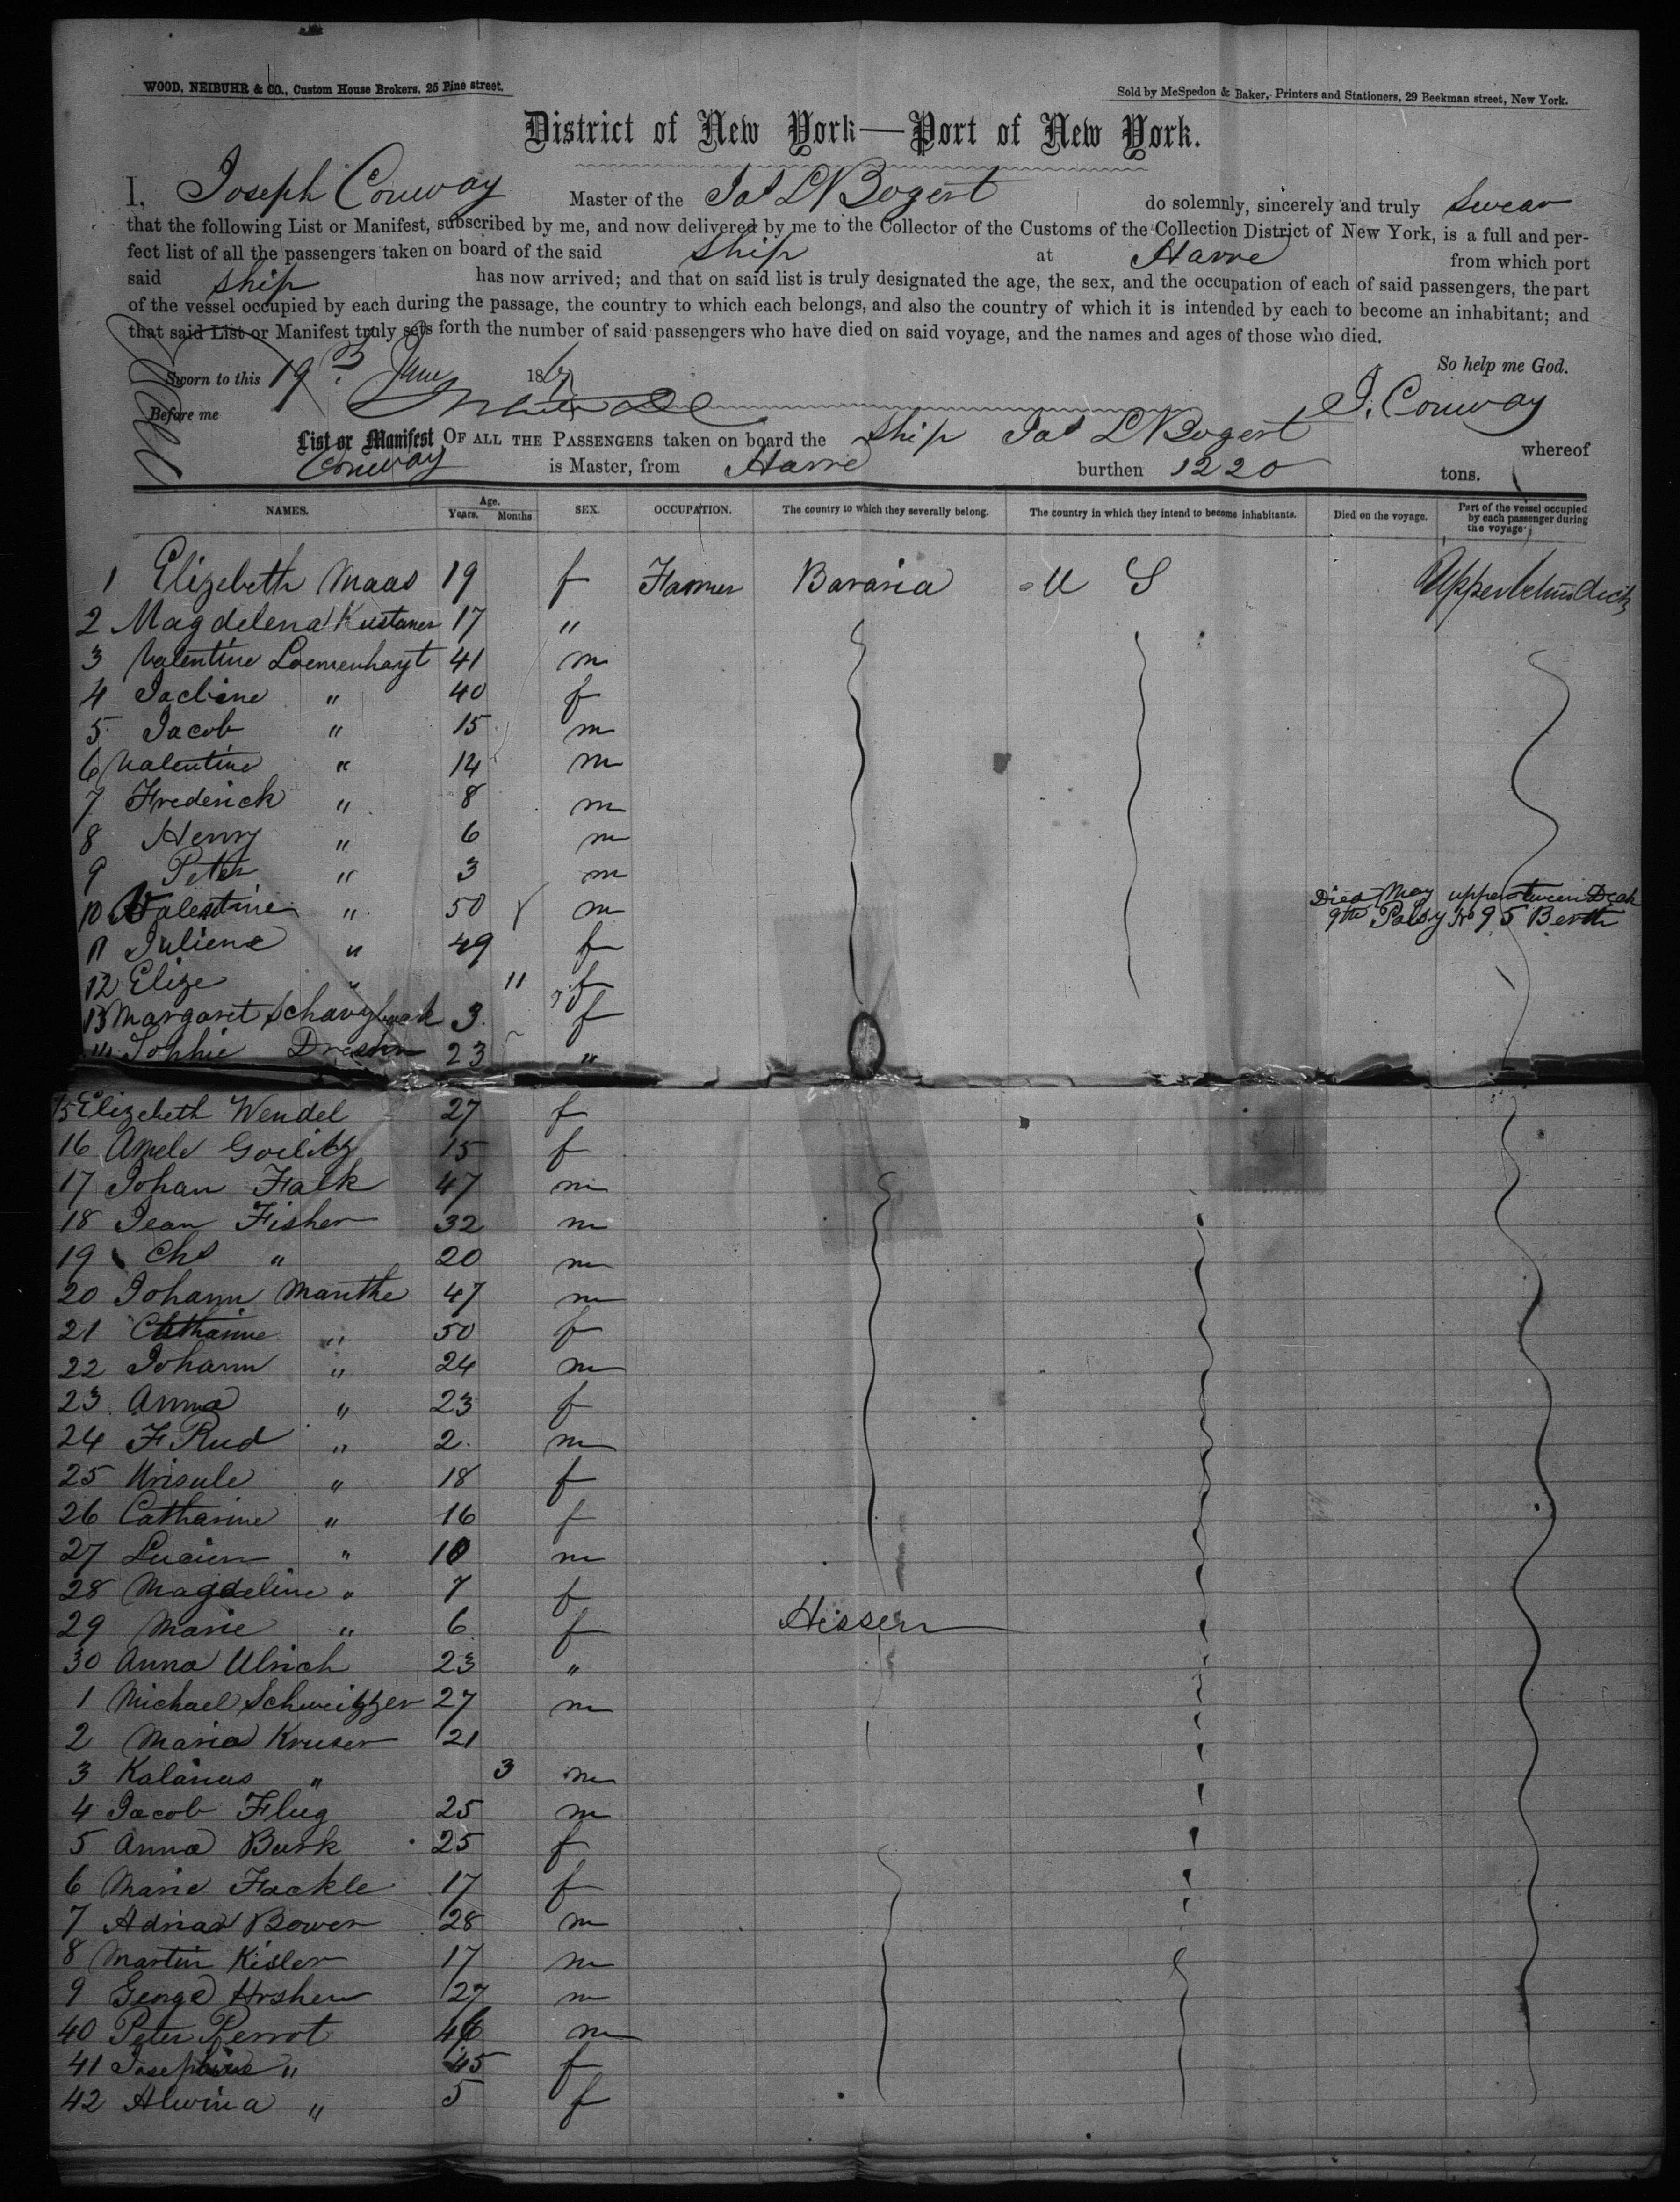 WOOD, NEIBUHR & CO., Custom House Brokers, 25 Pine street.
Sold by McSpedon & Baker, Printers and Stationers, 29 Beekman street, New York.
District of New York—Port of New York.
I, Joseph Conway Master of the Jas L Bogert do solemnly, sincerely and truly swear
that the following List or Manifest, subscribed by me, and now delivered by me to the Collector of the Customs of the Collection District of New York, is a full and per-
fect list of all the passengers taken on board of the said ship at Havre from which port
said ship has now arrived; and that on said list is truly designated the age, the sex, and the occupation of each of said passengers, the part
of the vessel occupied by each during the passage, the country to which each belongs, and also the country of which it is intended by each to become an inhabitant; and
that said List or Manifest truly sets forth the number of said passengers who have died on said voyage, and the names and ages of those who died.
So help me God.
Sworn to this 19 June 18
Before me
J. Conway
List or Manifest OF ALL THE PASSENGERS taken on board the ship Jas L Bogert whereof
Conway is Master, from Havre burthen 1220 tons.
NAMES. Age. Years. Months SEX. OCCUPATION. The country to which they severally belong. The country in which they intend to become inhabitants. Died on the voyage. Part of the vessel occupied by each passenger during the voyage.
1 Elizebeth Maas 19 f Farmer Bavaria U S Upper
2 Magdelena Kustaner 17 "
3 Valentine Loemenhayt 41 m
4 Jacbine " 40 f
5 Jacob " 15 m
6 Valentine " 14 m
7 Frederick " 8 m
8 Henry " 6 m
9 Peter " 3 m
10 Valentine " 50 m Died May 9th Palsy upper tween Deck No 95 Berth
11 Juliene " 49 f
12 Elize " 11 f
13 Margaret 3 f
14 Sophie 23 "
15 Elizebeth Wendel 27 f
16 Amele Goelitz 15 f
17 Johan Falk 47 m
18 Jean Fisher 32 m
19 Chs " 20 m
20 Johann Manthe 47 m
21 Catharine " 50 f
22 Johann " 24 m
23 Anna " 23 f
24 F Rud " 2 m
25 Urisule " 18 f
26 Catharine " 16 f
27 Lucien " 10 m
28 Magdeline " 7 f
29 Marie " 6 f Hessen
30 Anna Ulrich 23 "
1 Michael Schweitzzer 27 m
2 Maria Kruser 21
3 Kalanus " 3 m
4 Jacob Flug 25 m
5 Anna Burk 25 f
6 Marie Fackle 17 f
7 Adriaa Bower 28 m
8 Martin Kisler 17 m
9 George Hrsher 27 m
40 Peter Perrot 46 m
41 Josephine " 45 f
42 Alwina " 5 f